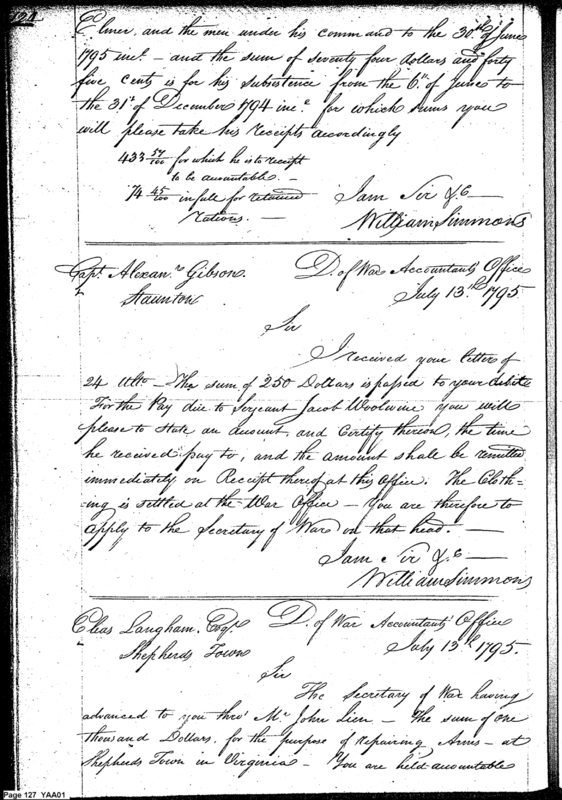 121
Elmer, and the men under his command to the 30th of June
1795 incl. - and the sum of seventy four dollars and forty
five cents is for his subsistence from the 6th of June to
the 31st of December 1794 incl. for which sums you
will please take his receipts accordingly
433 57/100 for which he is to receipt
to be accountable. -
74 45/100 in full for retained
rations. -
I am Sir &c
William Simmons
Capt. Alexanr. Gibson. D. of War Accountants' Office
Staunton July 13th 1795
Sir
I received your letter of
24 Ulto - The sum of 250 Dollars is passed to your debit
For the Pay due to Sergeant Jacob Woolwine you will
please to state an account, and Certify thereon, the time
he received pay to, and the amount shall be remitted
immediately on Receipt thereof at this Office. The Cloth-
ing is settled at the War Office - You are therefore to
apply to the Secretary of War on that head. -
I am Sir &c
William Simmons
Elias Langham. Esqr. D. of War Accountants' Office
Shepherds Town July 13th 1795.
Sir
The Secretary of War having
advanced to you thro' Mr. John Lien - The sum of one
thousand Dollars, for the purpose of repairing Arms - at
Shepherds Town in Virginia - You are held accountable
Page 127 YAA01